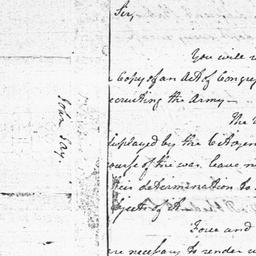 Sir,
You will
a Copy of an Act of Congre
recruiting the Army—
The
displayed by the Citizen
course of the war leave
their determination to
objects of
Force and
are necessary to render
John Jay.